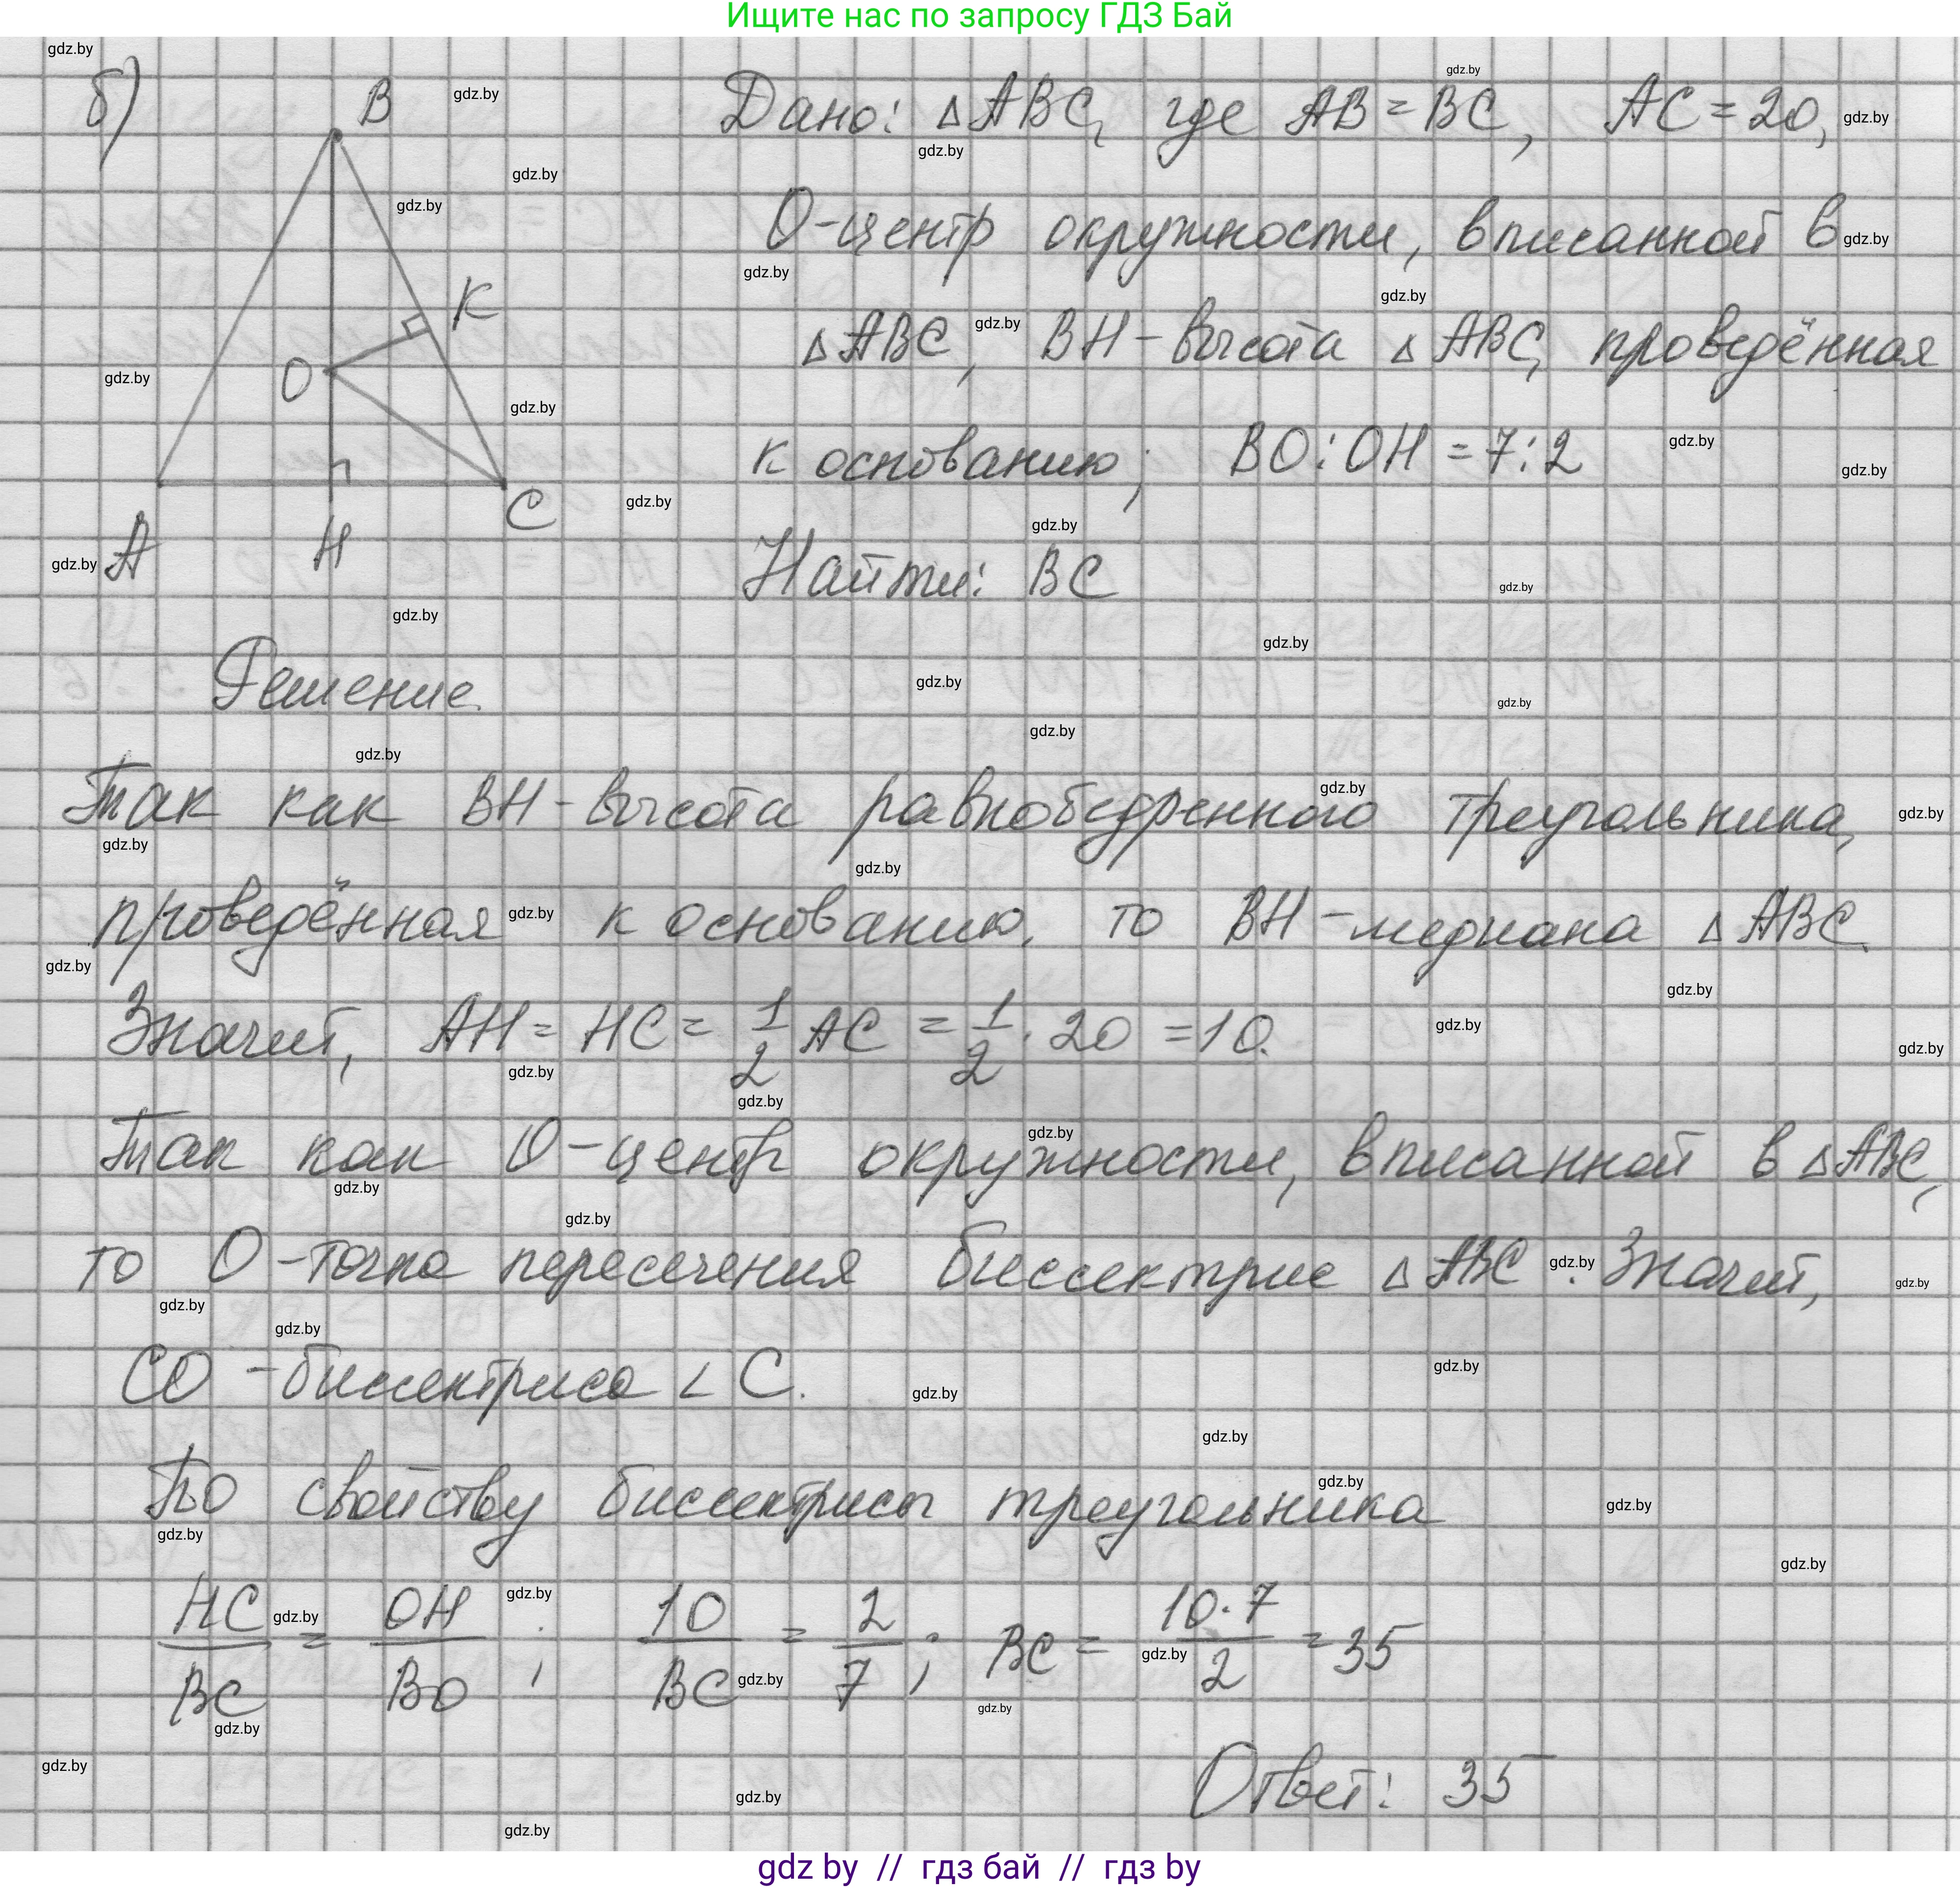 Ищите нас по запросу ГДЗ Бай
б) Дано: △ABC, где AB = BC, AC = 20,
O-центр окружности, вписанной в
△ABC, BH - высота △ABC, проведённая
к основанию; BO : OH = 7 : 2
Найти: BC
B
K
O
A
H
C
Решение.
Так как BH - высота равнобедренного треугольника,
проведённая к основанию, то BH - медиана △ABC.
Значит, AH = HC = 1/2 AC = 1/2 · 20 = 10.
Так как O - центр окружности, вписанной в △ABC,
то O - точка пересечения биссектрис △ABC. Значит,
CO - биссектриса ∠C.
По свойству биссектрисы треугольника
HC/BC = OH/BO ; 10/BC = 2/7 ; BC = 10·7/2 = 35
Ответ: 35
gdz by // гдз бай // гдз by